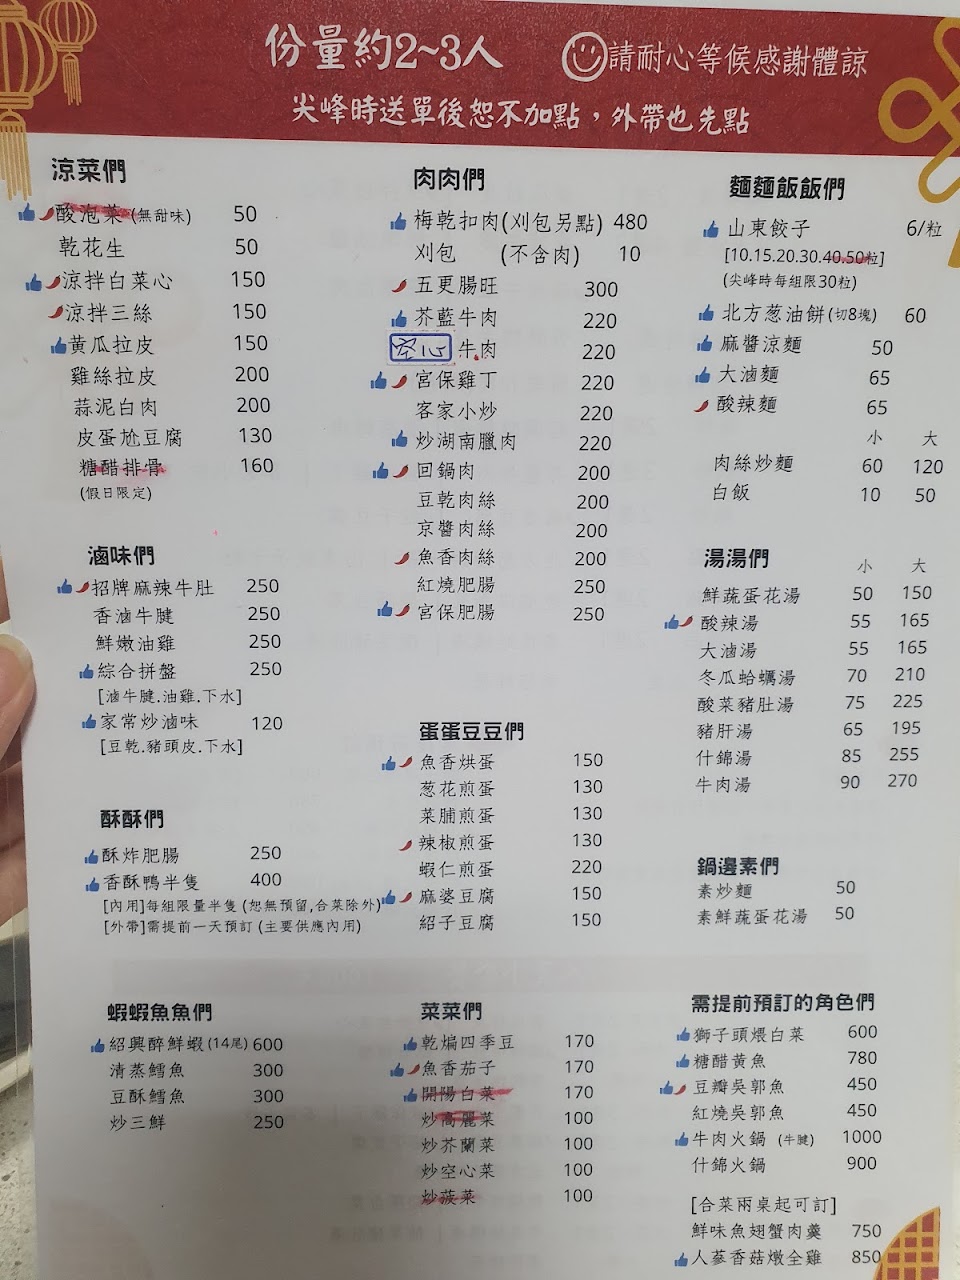 份量約2~3人
請耐心等候感謝體諒
尖峰時送單後恕不加點，外帶也先點
涼菜們
酸泡菜(無甜味) 50
乾花生 50
涼拌白菜心 150
涼拌三絲 150
黃瓜拉皮 150
雞絲拉皮 200
蒜泥白肉 200
皮蛋尬豆腐 130
糖醋排骨 160
(假日限定)
滷味們
招牌麻辣牛肚 250
香滷牛腱 250
鮮嫩油雞 250
綜合拼盤 250
[滷牛腱.油雞.下水]
家常炒滷味 120
[豆乾.豬頭皮.下水]
酥酥們
酥炸肥腸 250
香酥鴨半隻 400
[內用]每組限量半隻 (恕無預留,合菜除外)
[外帶]需提前一天預訂 (主要供應內用)
蝦蝦魚魚們
紹興醉鮮蝦(14尾) 600
清蒸鱈魚 300
豆酥鱈魚 300
炒三鮮 250
肉肉們
梅乾扣肉(刈包另點) 480
刈包 (不含肉) 10
五更腸旺 300
芥藍牛肉 220
空心牛肉 220
宮保雞丁 220
客家小炒 220
炒湖南臘肉 220
回鍋肉 200
豆乾肉絲 200
京醬肉絲 200
魚香肉絲 200
紅燒肥腸 250
宮保肥腸 250
蛋蛋豆豆們
魚香烘蛋 150
葱花煎蛋 130
菜脯煎蛋 130
辣椒煎蛋 130
蝦仁煎蛋 220
麻婆豆腐 150
紹子豆腐 150
菜菜們
乾煸四季豆 170
魚香茄子 170
開陽白菜 170
炒高麗菜 100
炒芥蘭菜 100
炒空心菜 100
炒菠菜 100
麵麵飯飯們
山東餃子 6/粒
[10.15.20.30.40.50粒]
(尖峰時每組限30粒)
北方葱油餅(切8塊) 60
麻醬涼麵 50
大滷麵 65
酸辣麵 65
小 大
肉絲炒麵 60 120
白飯 10 50
湯湯們 小 大
鮮蔬蛋花湯 50 150
酸辣湯 55 165
大滷湯 55 165
冬瓜蛤蠣湯 70 210
酸菜豬肚湯 75 225
豬肝湯 65 195
什錦湯 85 255
牛肉湯 90 270
鍋邊素們
素炒麵 50
素鮮蔬蛋花湯 50
需提前預訂的角色們
獅子頭煨白菜 600
糖醋黃魚 780
豆瓣吳郭魚 450
紅燒吳郭魚 450
牛肉火鍋 (牛腱) 1000
什錦火鍋 900
[合菜兩桌起可訂]
鮮味魚翅蟹肉羹 750
人蔘香菇燉全雞 850